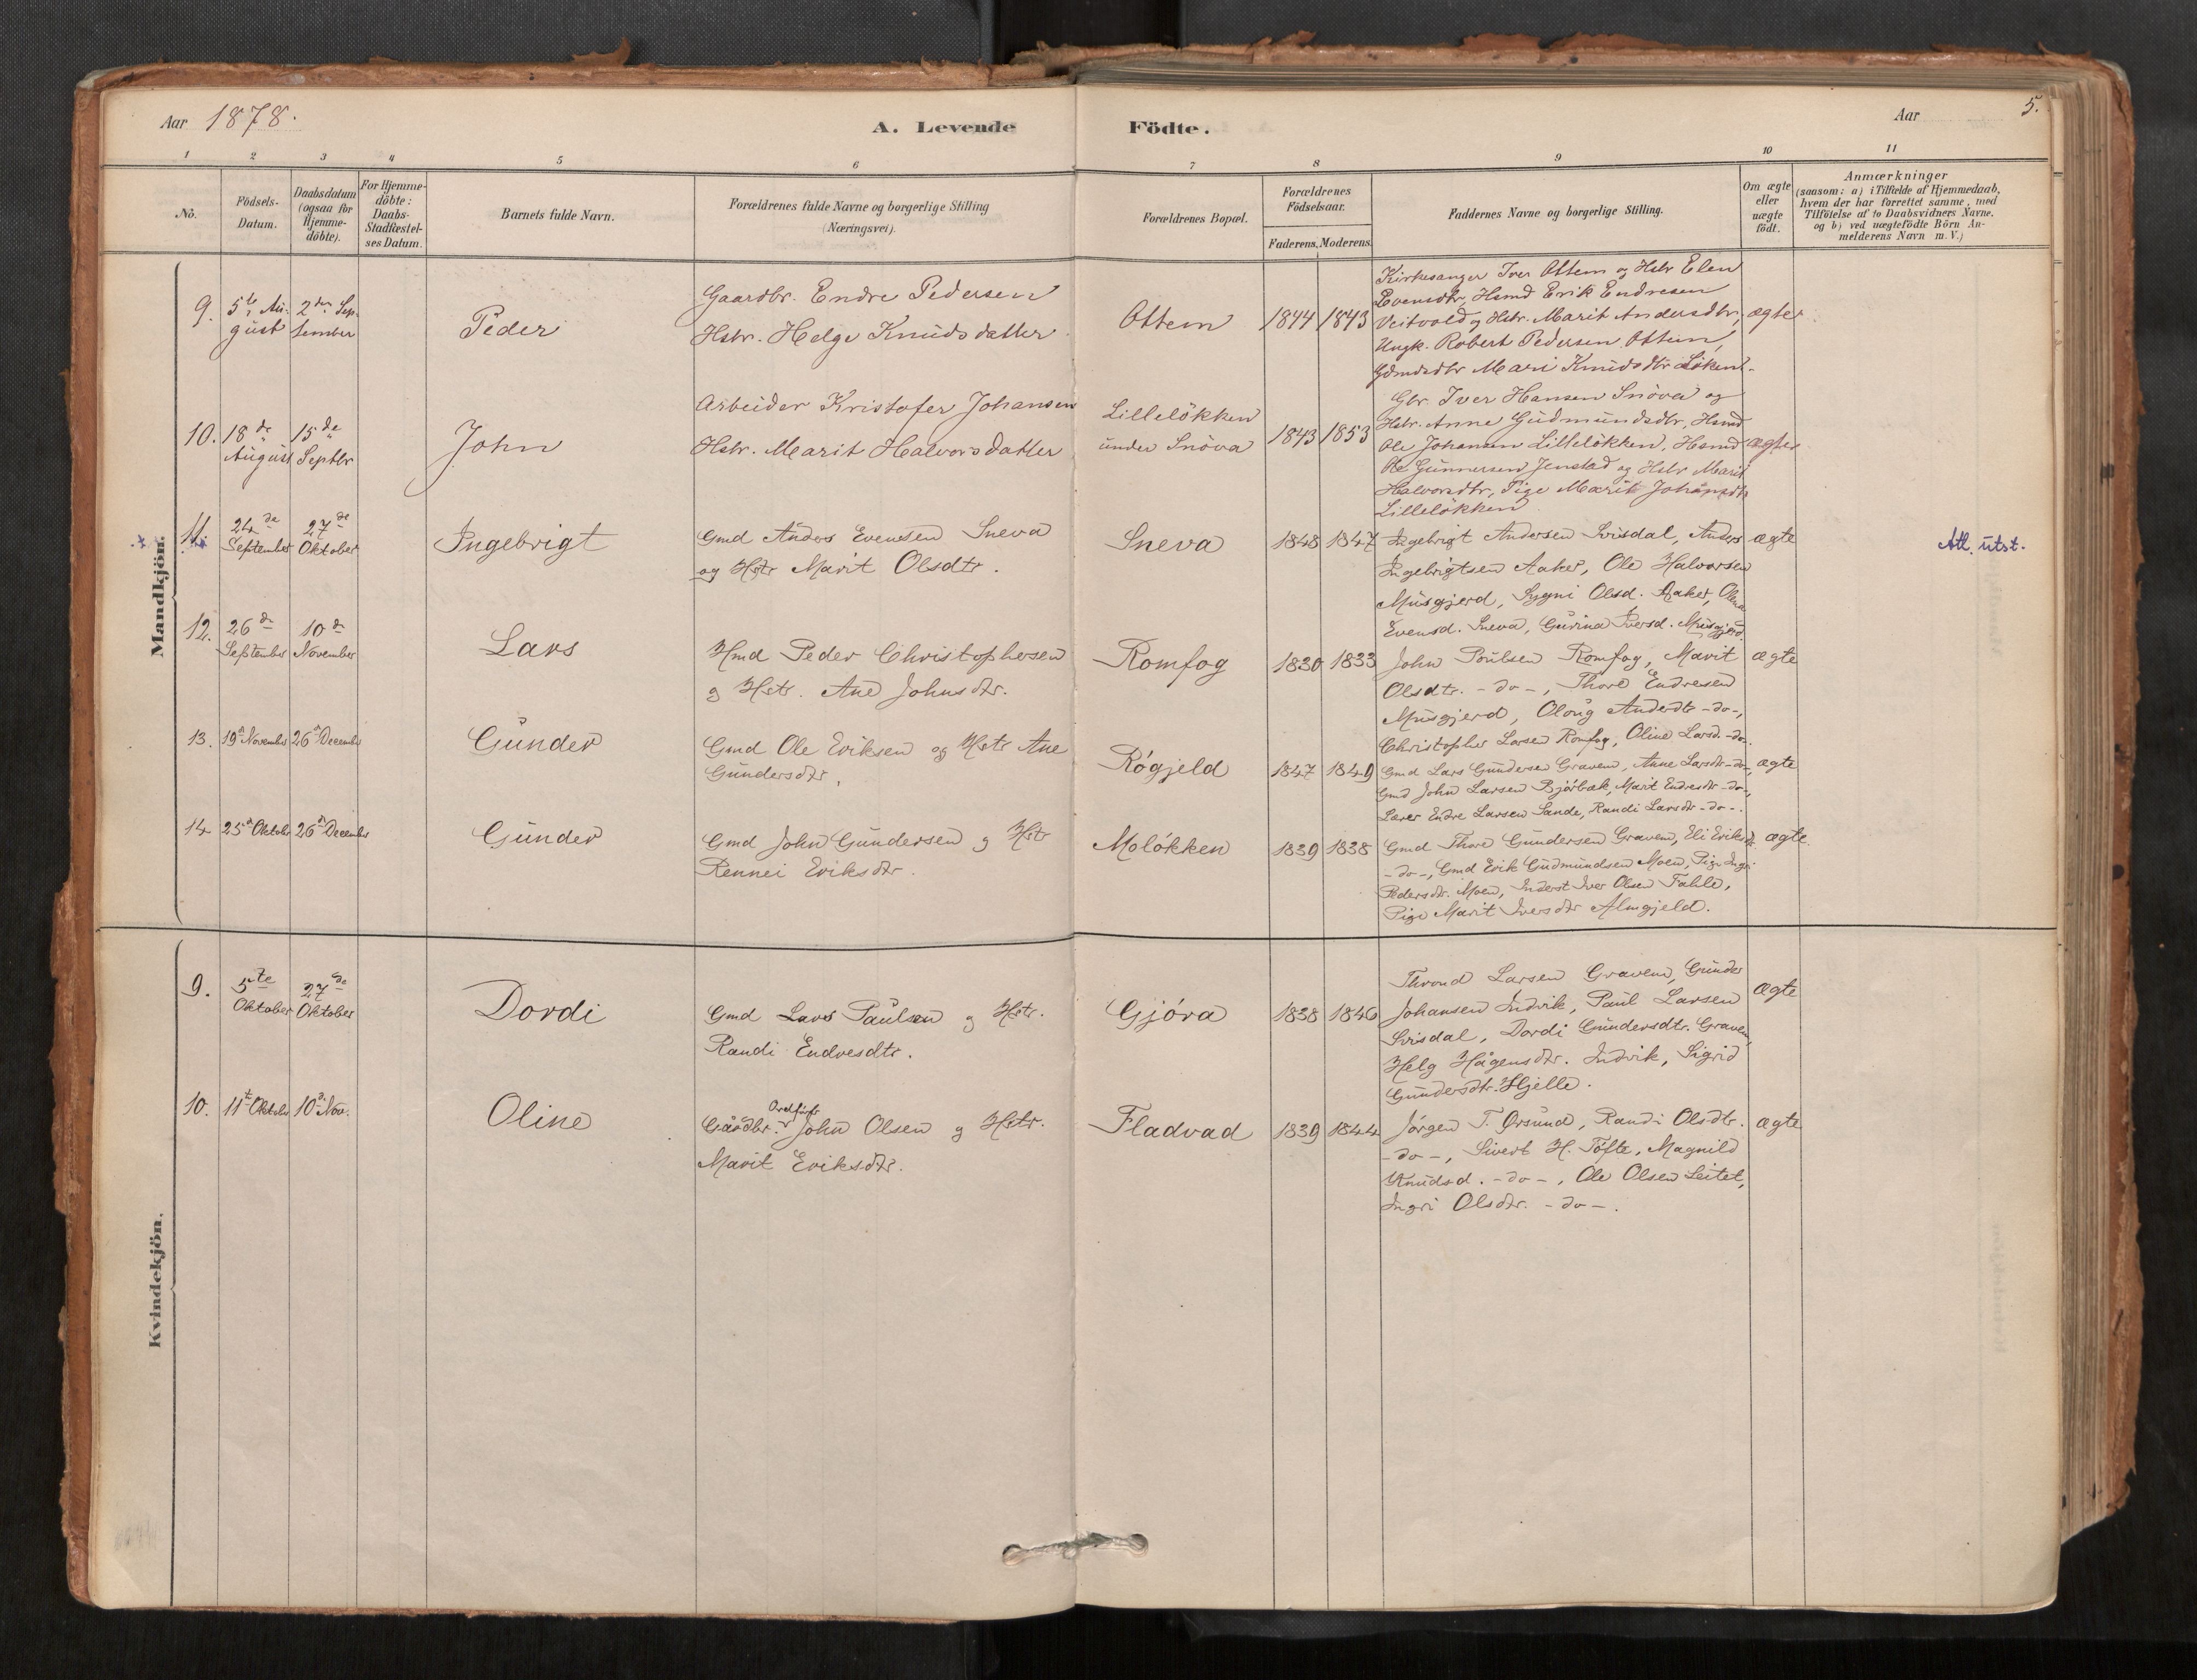 Aar 1878.
A. Levende Födte.
Aar
5.
1 2 3 4 5 6 7 8 9 10 11
No.
Födsels-
Datum.
Daabsdatum
(ogsaa for
Hjemme-
döbte).
For Hjemme-
döbte:
Daabs-
Stadfæstel-
ses Datum.
Barnets fulde Navn.
Forældrenes fulde Navne og borgerlige Stilling
(Næringsvei).
Forældrenes Bopæl.
Forældrenes
Födselsaar.
Faderens. Moderens.
Faddernes Navne og borgerlige Stilling.
Om ægte
eller
uægte
födt.
Anmærkninger
(saasom: a) i Tilfælde af Hjemmedaab,
hvem der har forrettet samme, med
Tilföielse af to Daabsvidners Navne.
og b) ved uægtefödte Börn An-
melderens Navn m. V.)
Mandkjön.
9.
5te Au-
gust
2den Sep-
tember
Peder
Gaardbr. Endre Pedersen
Hstr. Helge Knudsdatter
Ottem
1844
1843
Kirkesanger Iver Ottem og Hstr Elen
Evensdtr, Hsmd Erik Endresen
Veitvold og Hstr. Marit Andersdtr,
Ungk. Robert Pedersen Ottem,
Gdmdsdtr Mari Knudsdtr Löken.
ægte
10.
18de
August
15de
Septbr
John
Arbeider Kristofer Johansen
Hstr. Marit Halvorsdatter
Lillelökken
under Snöva
1843
1853
Gbr. Iver Hansen Snöva og
Hstr. Anne Gudmundsdtr, Hsmd
Ole Johansen Lillelökken, Hsmd
Ole Gunnersen Jenstad og Hstr Marit
Halvorsdtr, Pige Marit Johansdtr
Lillelökken
ægte
11.
24de
September
27de
Oktober
Ingebrigt
Gmd Anders Evensen Sneva
og Hstr Marit Olsdtr.
Sneva
1848
1847
Ingebrigt Andersen Svisdal, Anders
Ingebrigtsen Aaker, Ole Halvorsen
Musgjerd, Sygni Olsd. Aaker, Olena
Evensd. Sneva, Gurina Iversd. Musgjerd.
ægte
Att. utst.
12.
26de
September
10de
November
Lars
Hmd Peder Christophersen
g Hstr. Ane Johnsdtr.
Romfog
1830
1833
John Poulsen Romfog, Marit
Olsdtr. -do-, Thore Endresen
Musgjerd, Oloug Andersdtr -do-,
Christopher Larsen Romfog, Oline Larsd. -do-.
ægte
13.
19de November
26de December
Gunder
Gmd Ole Eriksen og Hstr Ane
Gundersdtr.
Rógjeld
1847
1849
Gmd Lars Gundersen Gravem, Anne Larsdtr -do-,
Gmd John Larsen Bjórbæk, Marit Endresdtr -do-,
Lærer Endre Larsen Sande, Randi Larsdtr -do-.
ægte
14
25de Oktober
26de December
Gunder
Gmd John Gundersen g Hstr
Rennei Eriksdtr.
Molókken
1839
1838
Gmd Thore Gundersen Gravem, Eli Eriksdtr
-do-, Gmd Erik Gudmundsen Moen, Pige Ingri
Pedersdtr. Moen, Inderst Iver Olsen Fahle,
Pige Marit Iversdtr Almgjeld.
ægte.
Kvindekjön.
9.
5te
Oktober
27de
Oktober
Dordi
Gmd Lars Paulsen g Hstr.
Randi Endresdtr.
Gjóra
1838
1846
Thrond Larsen Gravem, Gunder
Johansen Indvik, Paul Larsen
Svisdal, Dordi Gundersdtr. Gravem,
Helg Hågensdtr. Indvik, Sigrid
Gundersdtr. Hjelle.
ægte
10.
11te Oktober
10de Nov.
Oline
Ordfürfr
Gårdbr. John Olsen g Hstr.
Marit Eriksdtr.
Fladvad
1839
1844
Jórgen T. Ørsund, Randi Olsdtr.
-do-, Sivert H. Tófte, Magnild
Knudsd. -do-, Ole Olsen Leitet,
Ingri Olsdtr. -do-.
ægte